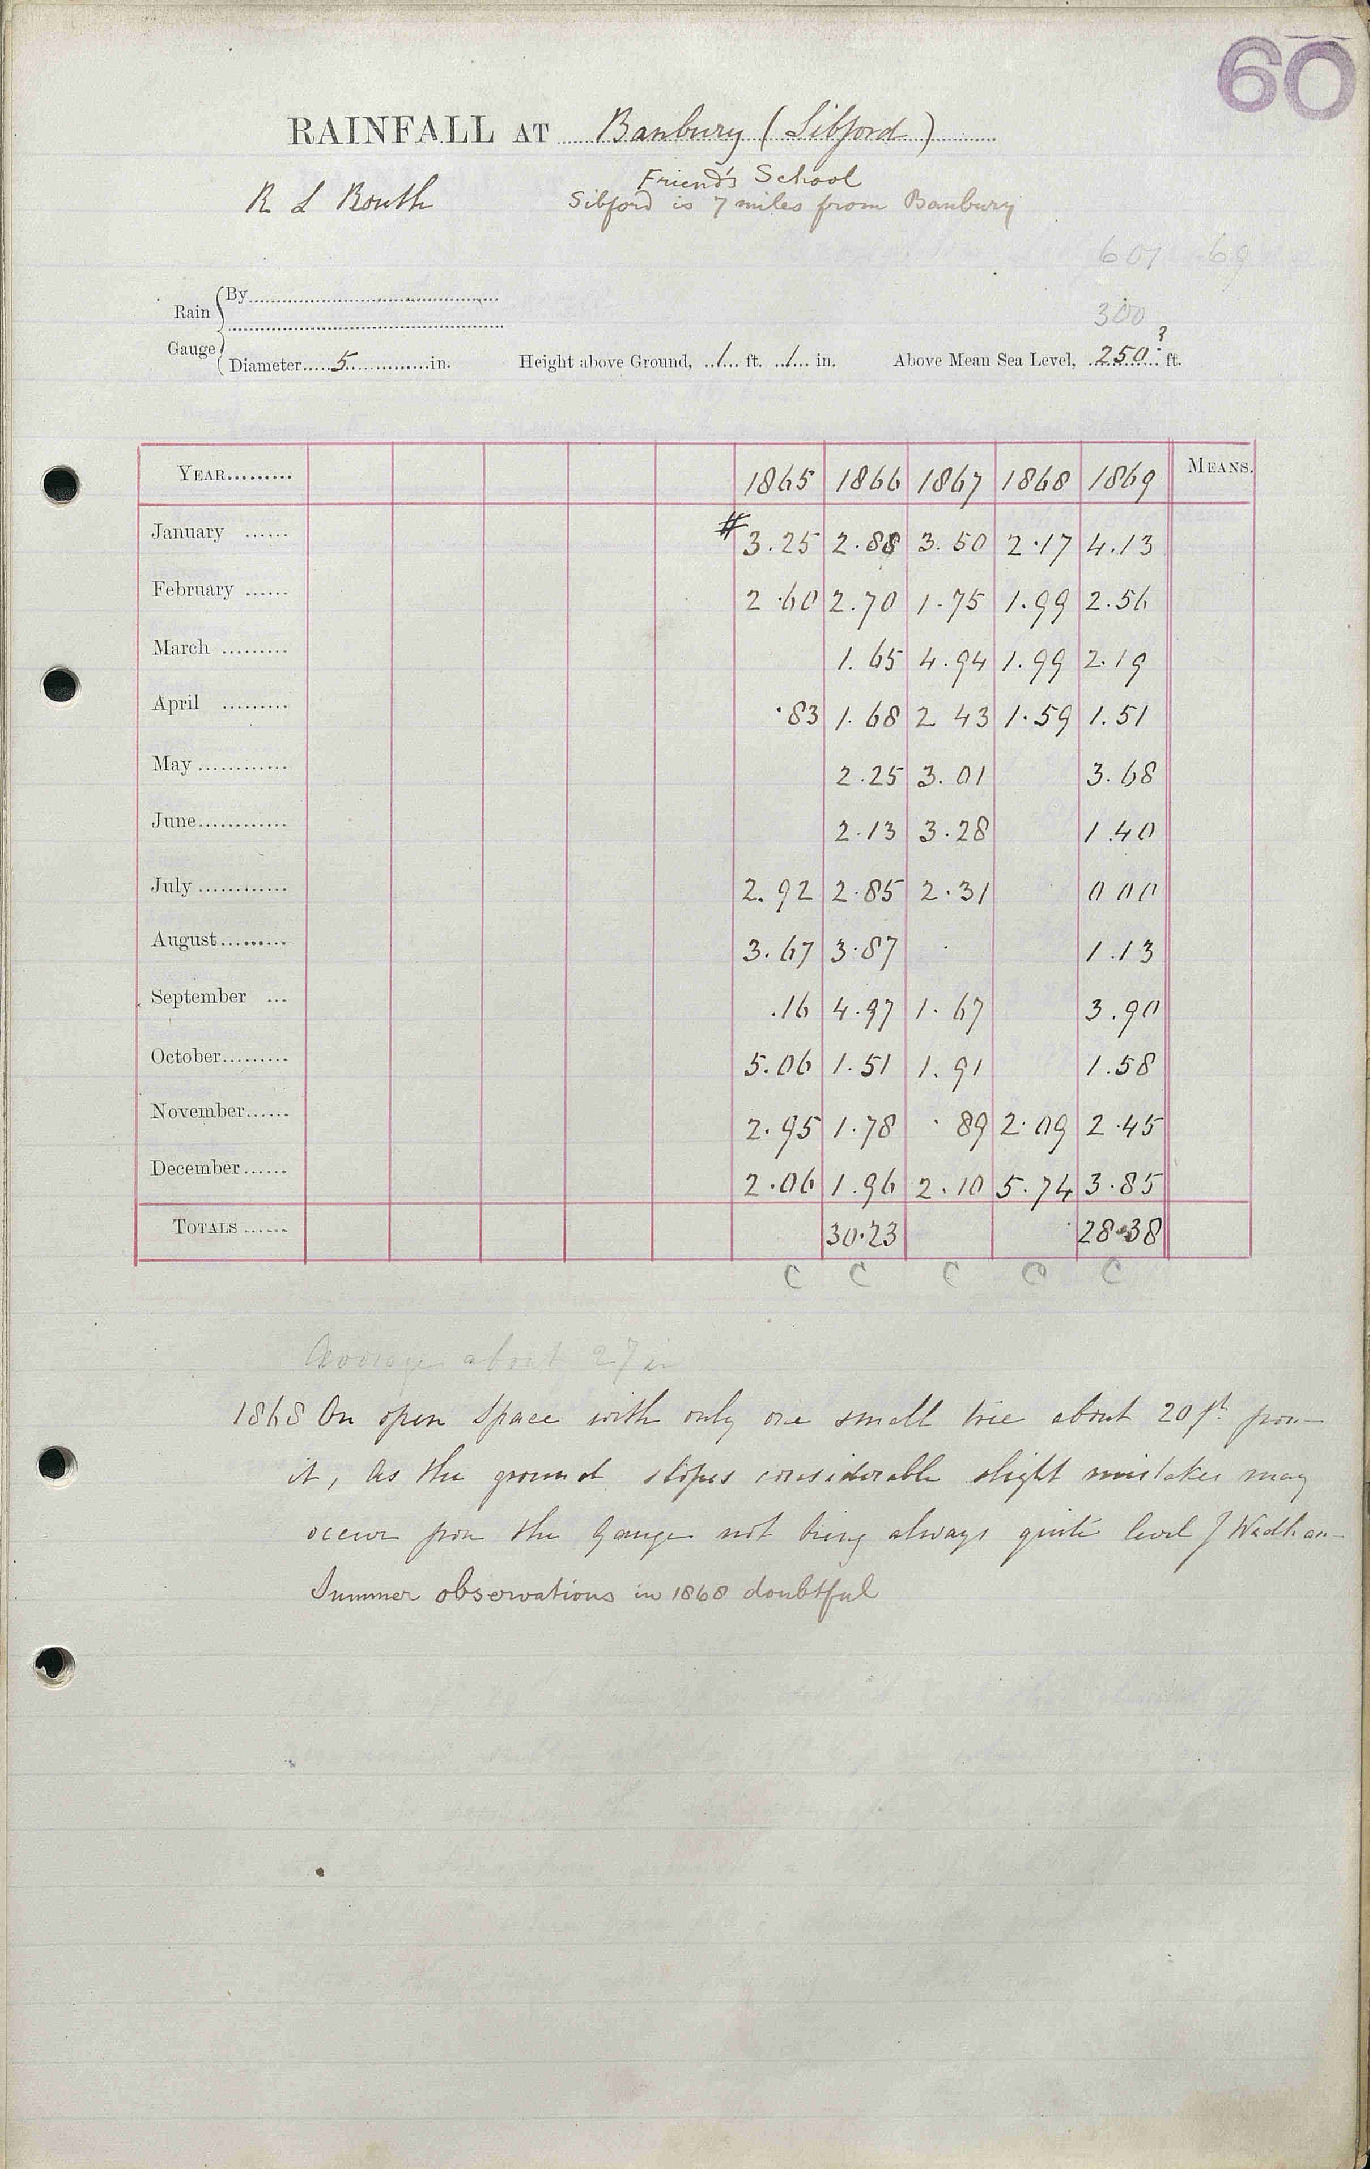 60
RAINFALL AT Banbury (Sibford)
Friend's School
R L Routh Sibford is 7 miles from Banbury
601 69
300
Rain Gauge { By
Diameter 5 in. Height above Ground, 1 ft. 1 in. Above Mean Sea Level, 250 ? ft.
YEAR 1865 1866 1867 1868 1869 MEANS.
January # 3.25 2.88 3.50 2.17 4.13
February 2.60 2.70 1.75 1.99 2.56
March 1.65 4.94 1.99 2.19
April .83 1.68 2 43 1.59 1.51
May 2.25 3.01 3.68
June 2.13 3.28 1.40
July 2.92 2.85 2.31 0 00
August 3.67 3.87 1.13
September .16 4.97 1.67 3.90
October 5.06 1.51 1.91 1.58
November 2.95 1.78 .89 2.09 2.45
December 2.06 1.96 2.10 5.74 3.85
TOTALS 30.23 28.38
C C C C C
Average about 27 in
1868 On open space with only one small tree about 20 ft from
it, as the ground slopes considerable slight mistakes may
occur from the Gauge not being always quite level J Wadham
Summer observations in 1868 doubtful